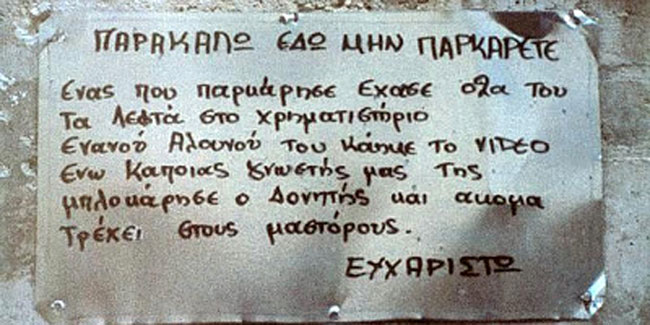 ΠΑΡΑΚΑΛΩ ΕΔΩ ΜΗΝ ΠΑΡΚΑΡΕΤΕ
Ενας που παρκάρησε Εχασε όλα του
Τα Λεφτά στο χρηματιστήριο
Ενανού Αλουνού του Κάηκε το VIDEO
Ενω Καποιας Γνωστής μας Της
μπλοκάρησε ο Δονητής και ακομα
Τρέχει στους μαστόρους.
ΕΥΧΑΡΙΣΤΩ